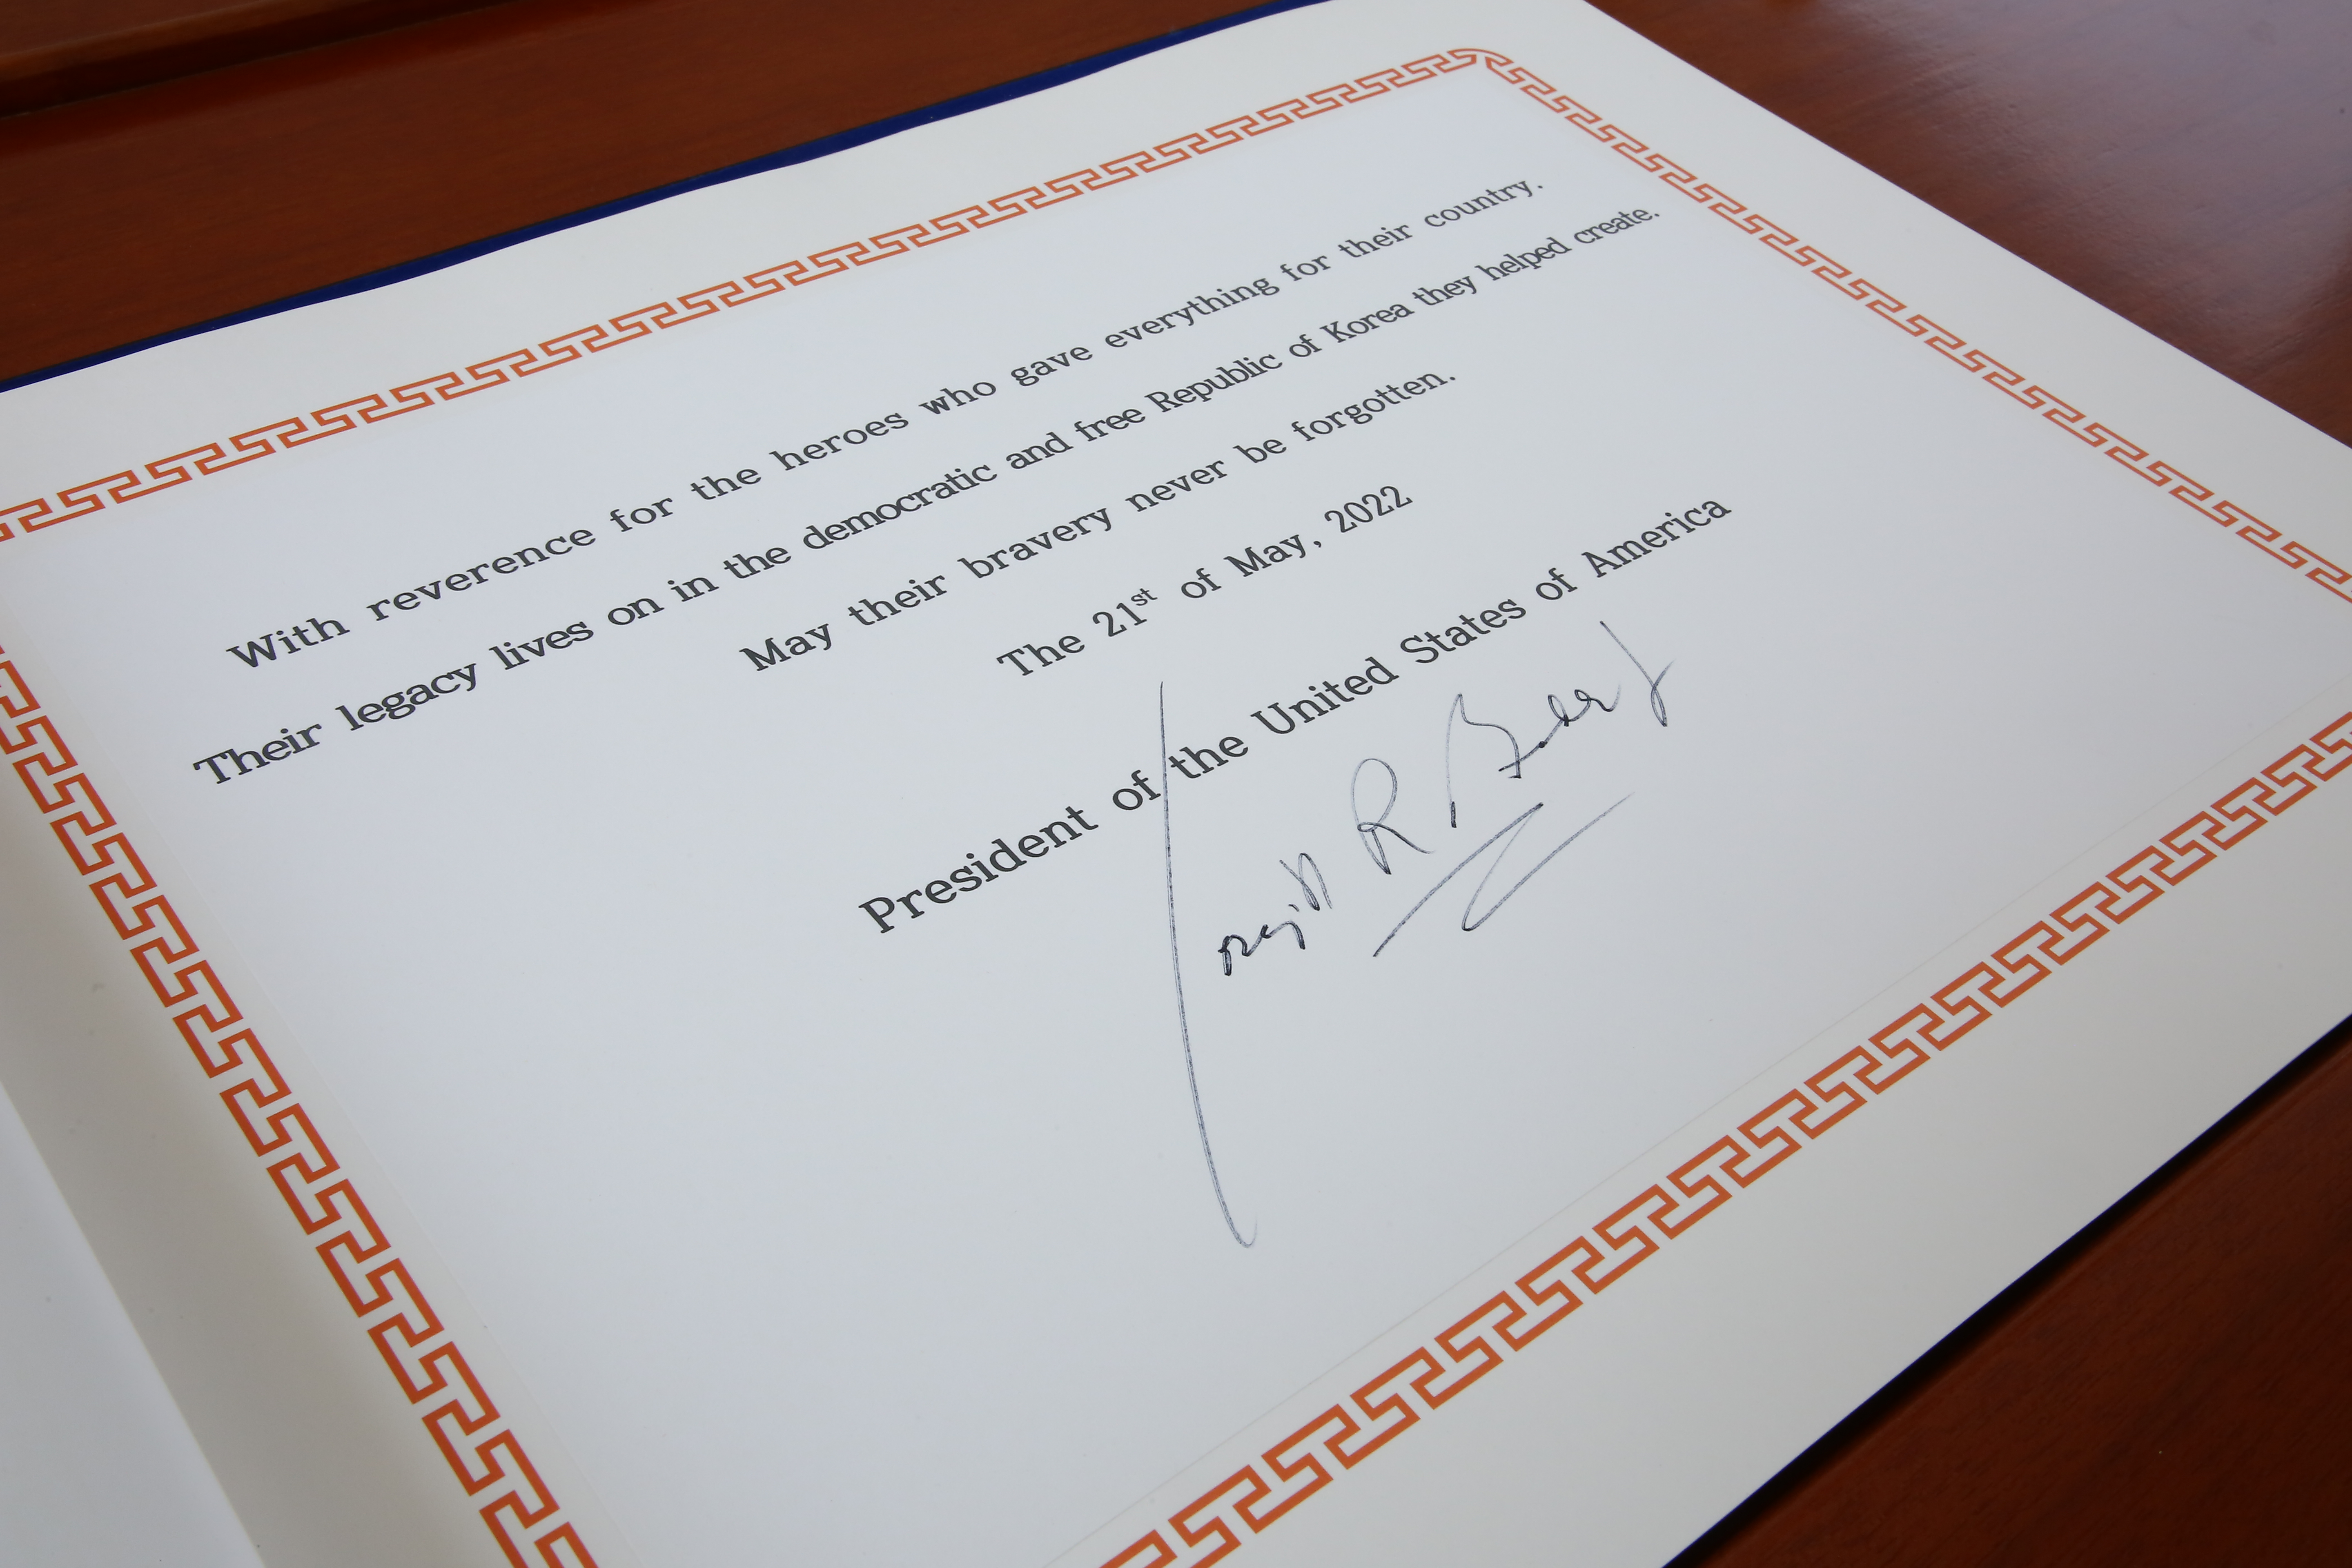 With reverence for the heroes who gave everything for their country.
Their legacy lives on in the democratic and free Republic of Korea they helped create.
May their bravery never be forgotten.
The 21st of May, 2022
President of the United States of America
R